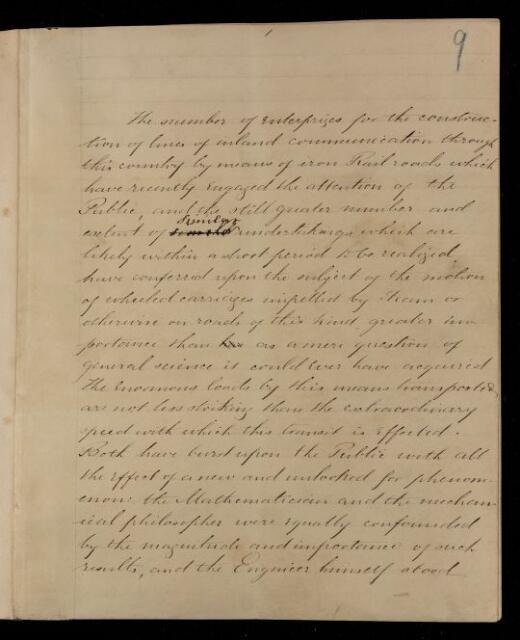 9
The number of enterprizes for the construc-
tion of lines of inland communication through
this country by means of iron Rail roads which
have recently engaged the attention of the
Public, and the still greater number and
similar
extent of undertakings which are
likely within a short period to be realized
have conferred upon the subject of the motion
of wheeled carriages impelled by steam or
otherwise on roads of this kind greater im-
portance than as a mere question of
general science it could ever have acquired
The enormous loads by this means transported,
are not less striking than the extraordinary
speed with which this transit is effected.
Both have burst upon the Public with all
the effect of a new and unlooked for phenom-
enon: the Mathematician and the mechan-
ical philosopher were equally confounded
by the magnitude and importance of such
results, and the Engineer himself stood